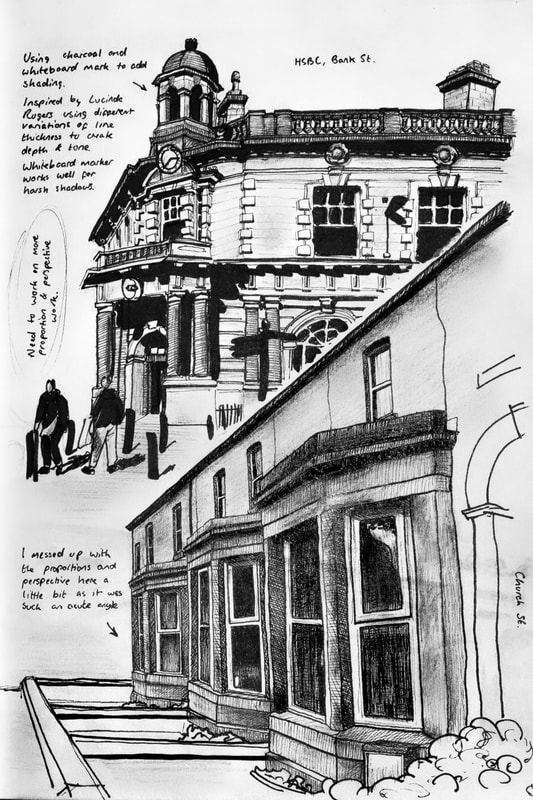 Using charcoal and
whiteboard mark to add
shading.
Inspired by Lucinda
Rogers using different
variations of line
thickness to creat
depth & tone.
Whiteboard marker
works well for
harsh shadows.
HSBC, Bank St.
Need to work on more
proportion & perspective
work.
I messed up with
the proportions and
perspective here a
little bit as it was
such an acute angle
Church St.